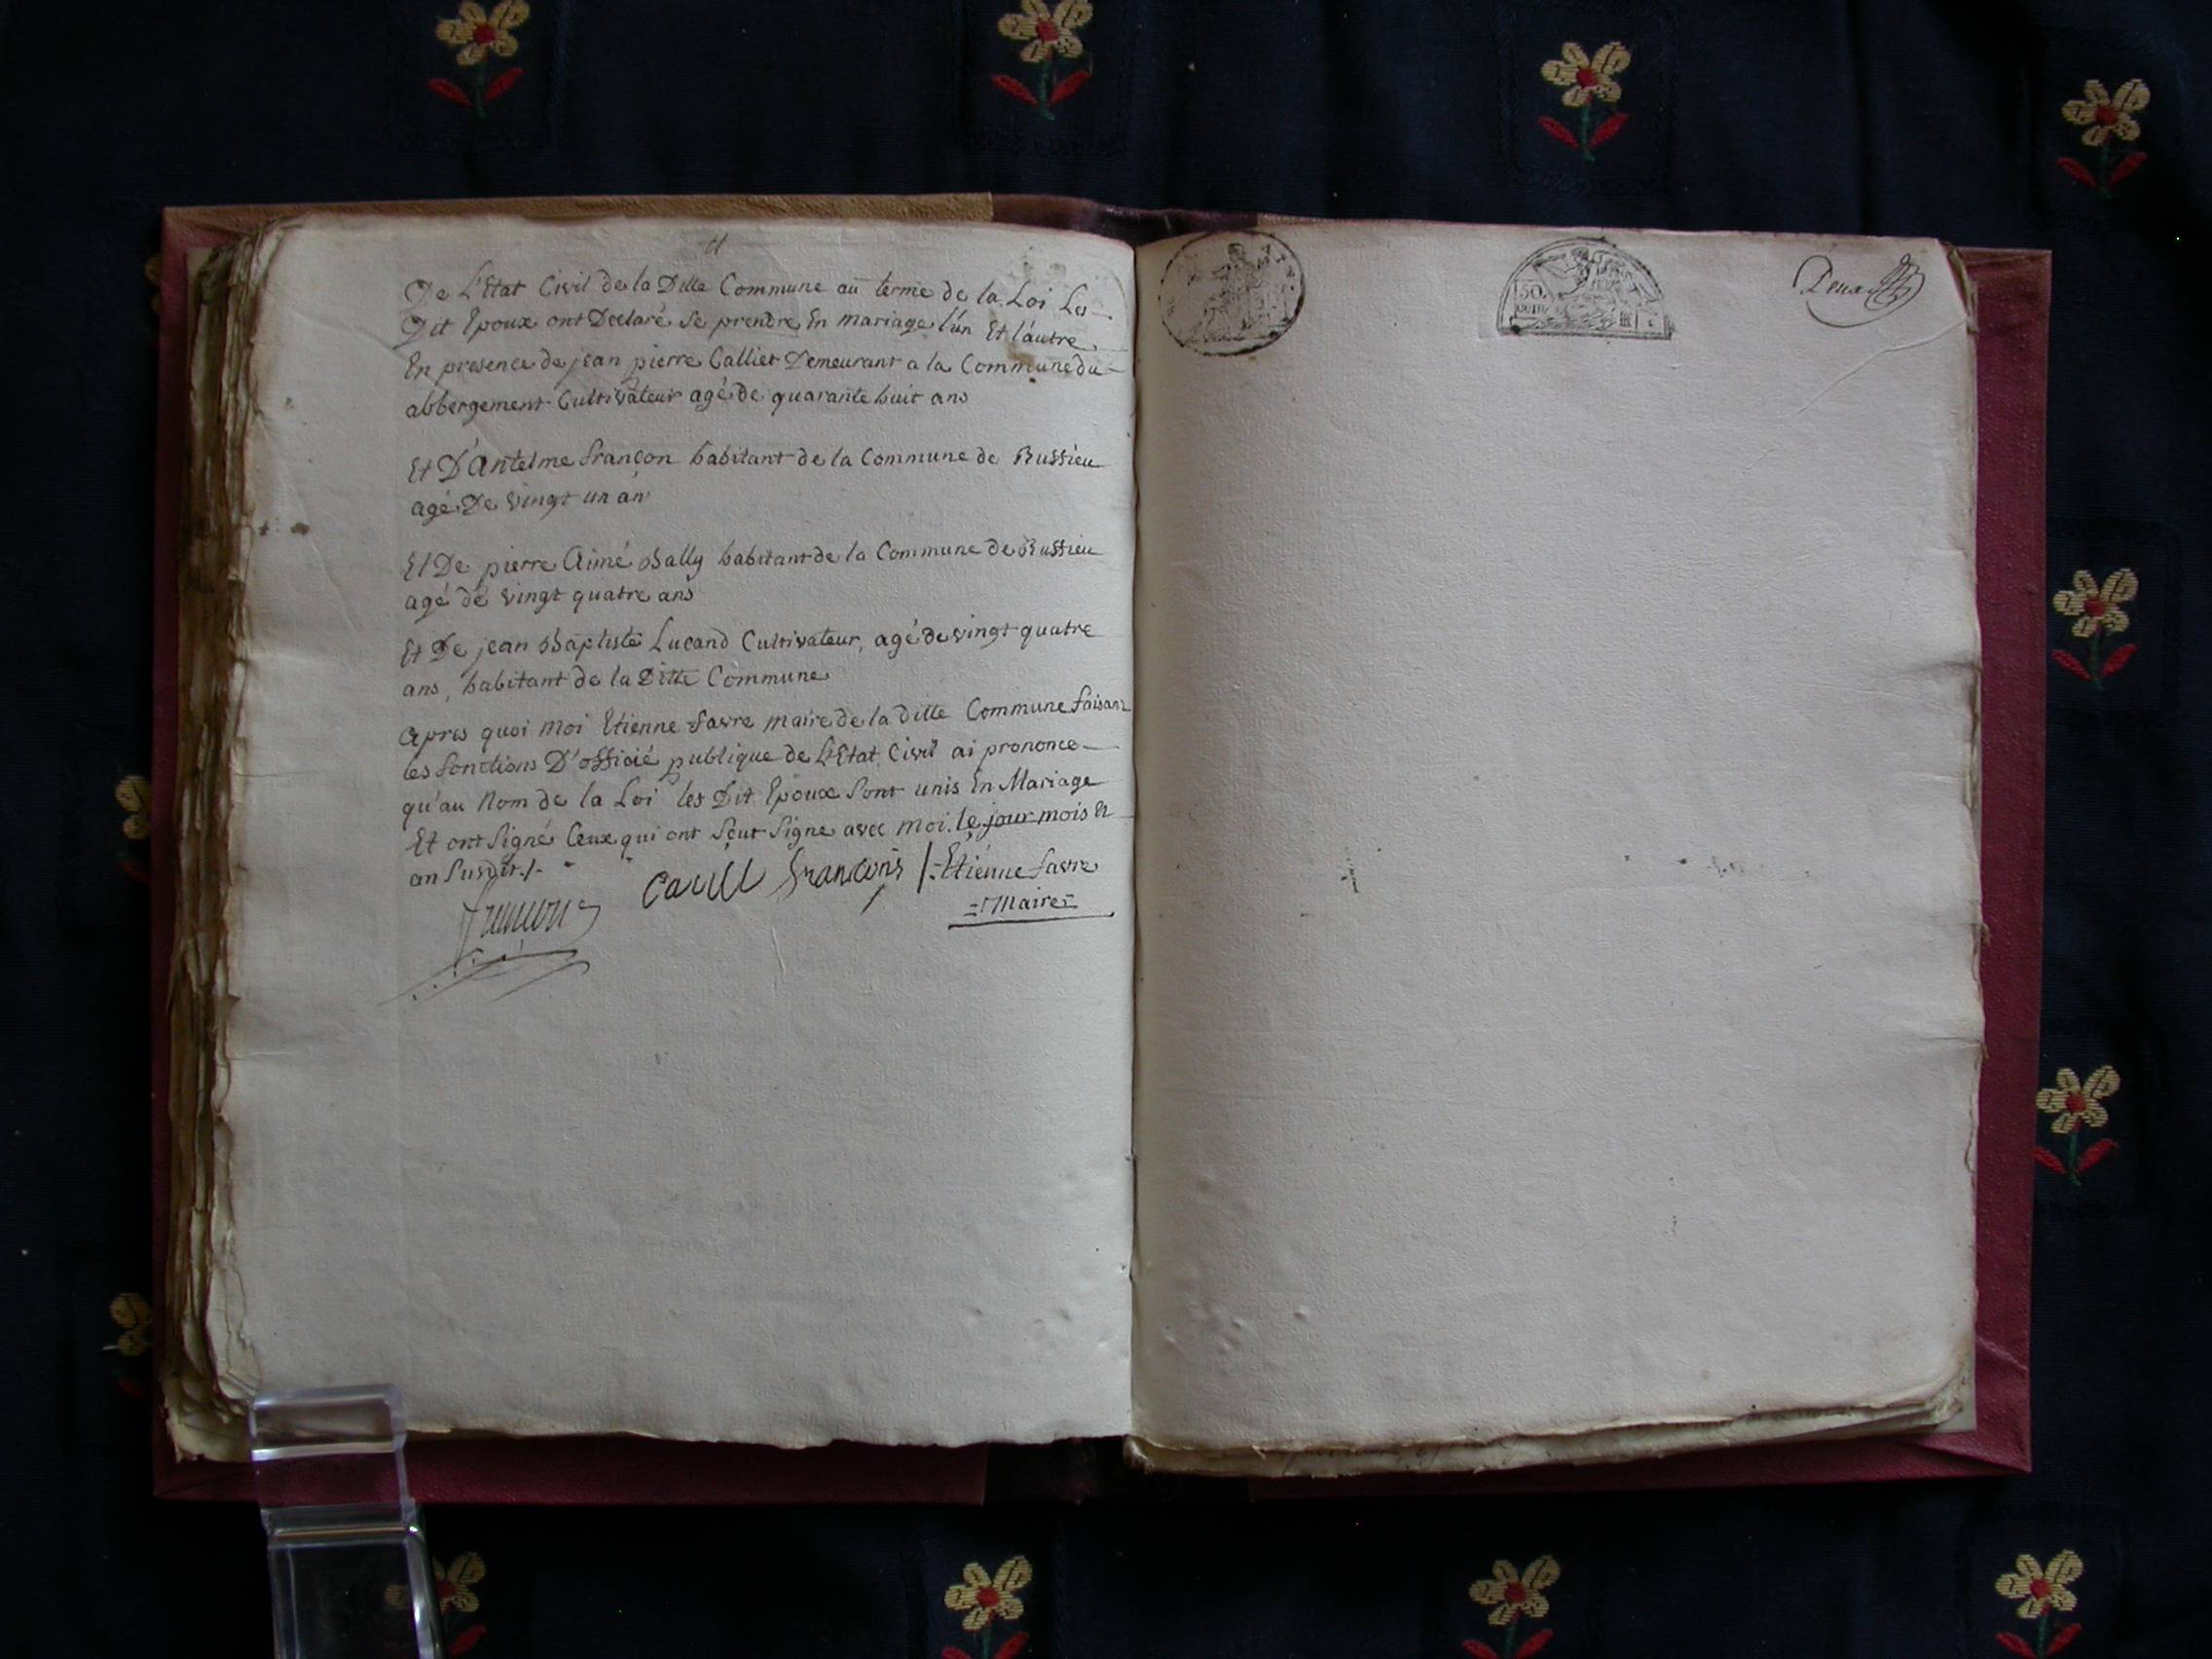 De L'Etat Civil de la Ditte Commune au terme de la Loi Les
Dit Epoux ont Declaré se prendre En mariage l'un Et l'autre
En presence de jean pierre Calliet Demeurant a la Commune du
abbergement Cultivateur agé de quarante huit ans
Et D'Antelme françon habitant de la Commune de Russieu
agé De vingt un an
Et De pierre Aimé Bally habitant de la Commune de Russieu
agé de vingt quatre ans
Et De jean Baptiste Lucand Cultivateur, agé de vingt quatre
ans, habitant de la Ditte Commune
Apres quoi moi Etienne favre maire de la ditte Commune faisant
les fonctions D'officié publique de L'Etat Civil ai prononce
qu'au Nom de la Loi les Dit Epoux Sont unis En Mariage
Et ont Signé Ceux qui ont Sçut Signe avec moi. le jour mois Et
an Susdit./.
françois /. Etienne favre
Maire
50
Deux